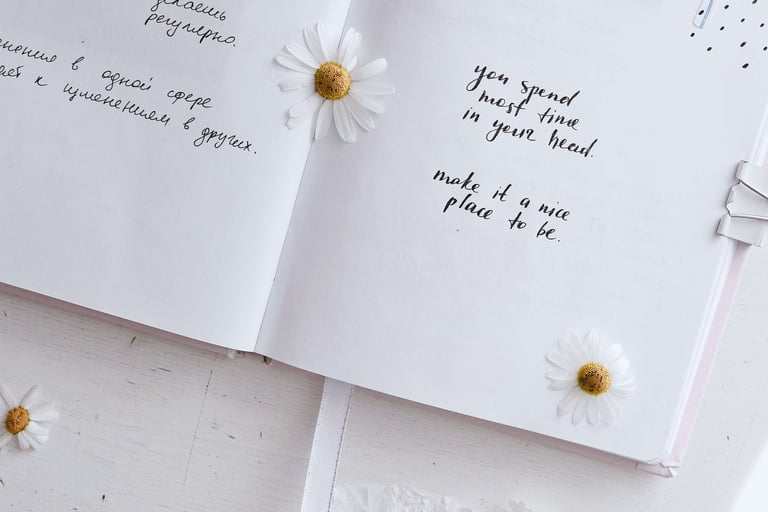 делаешь
регулярно.
в одной сфере
к изменениям в других.
you spend
most time
in your head.
make it a nice
place to be.